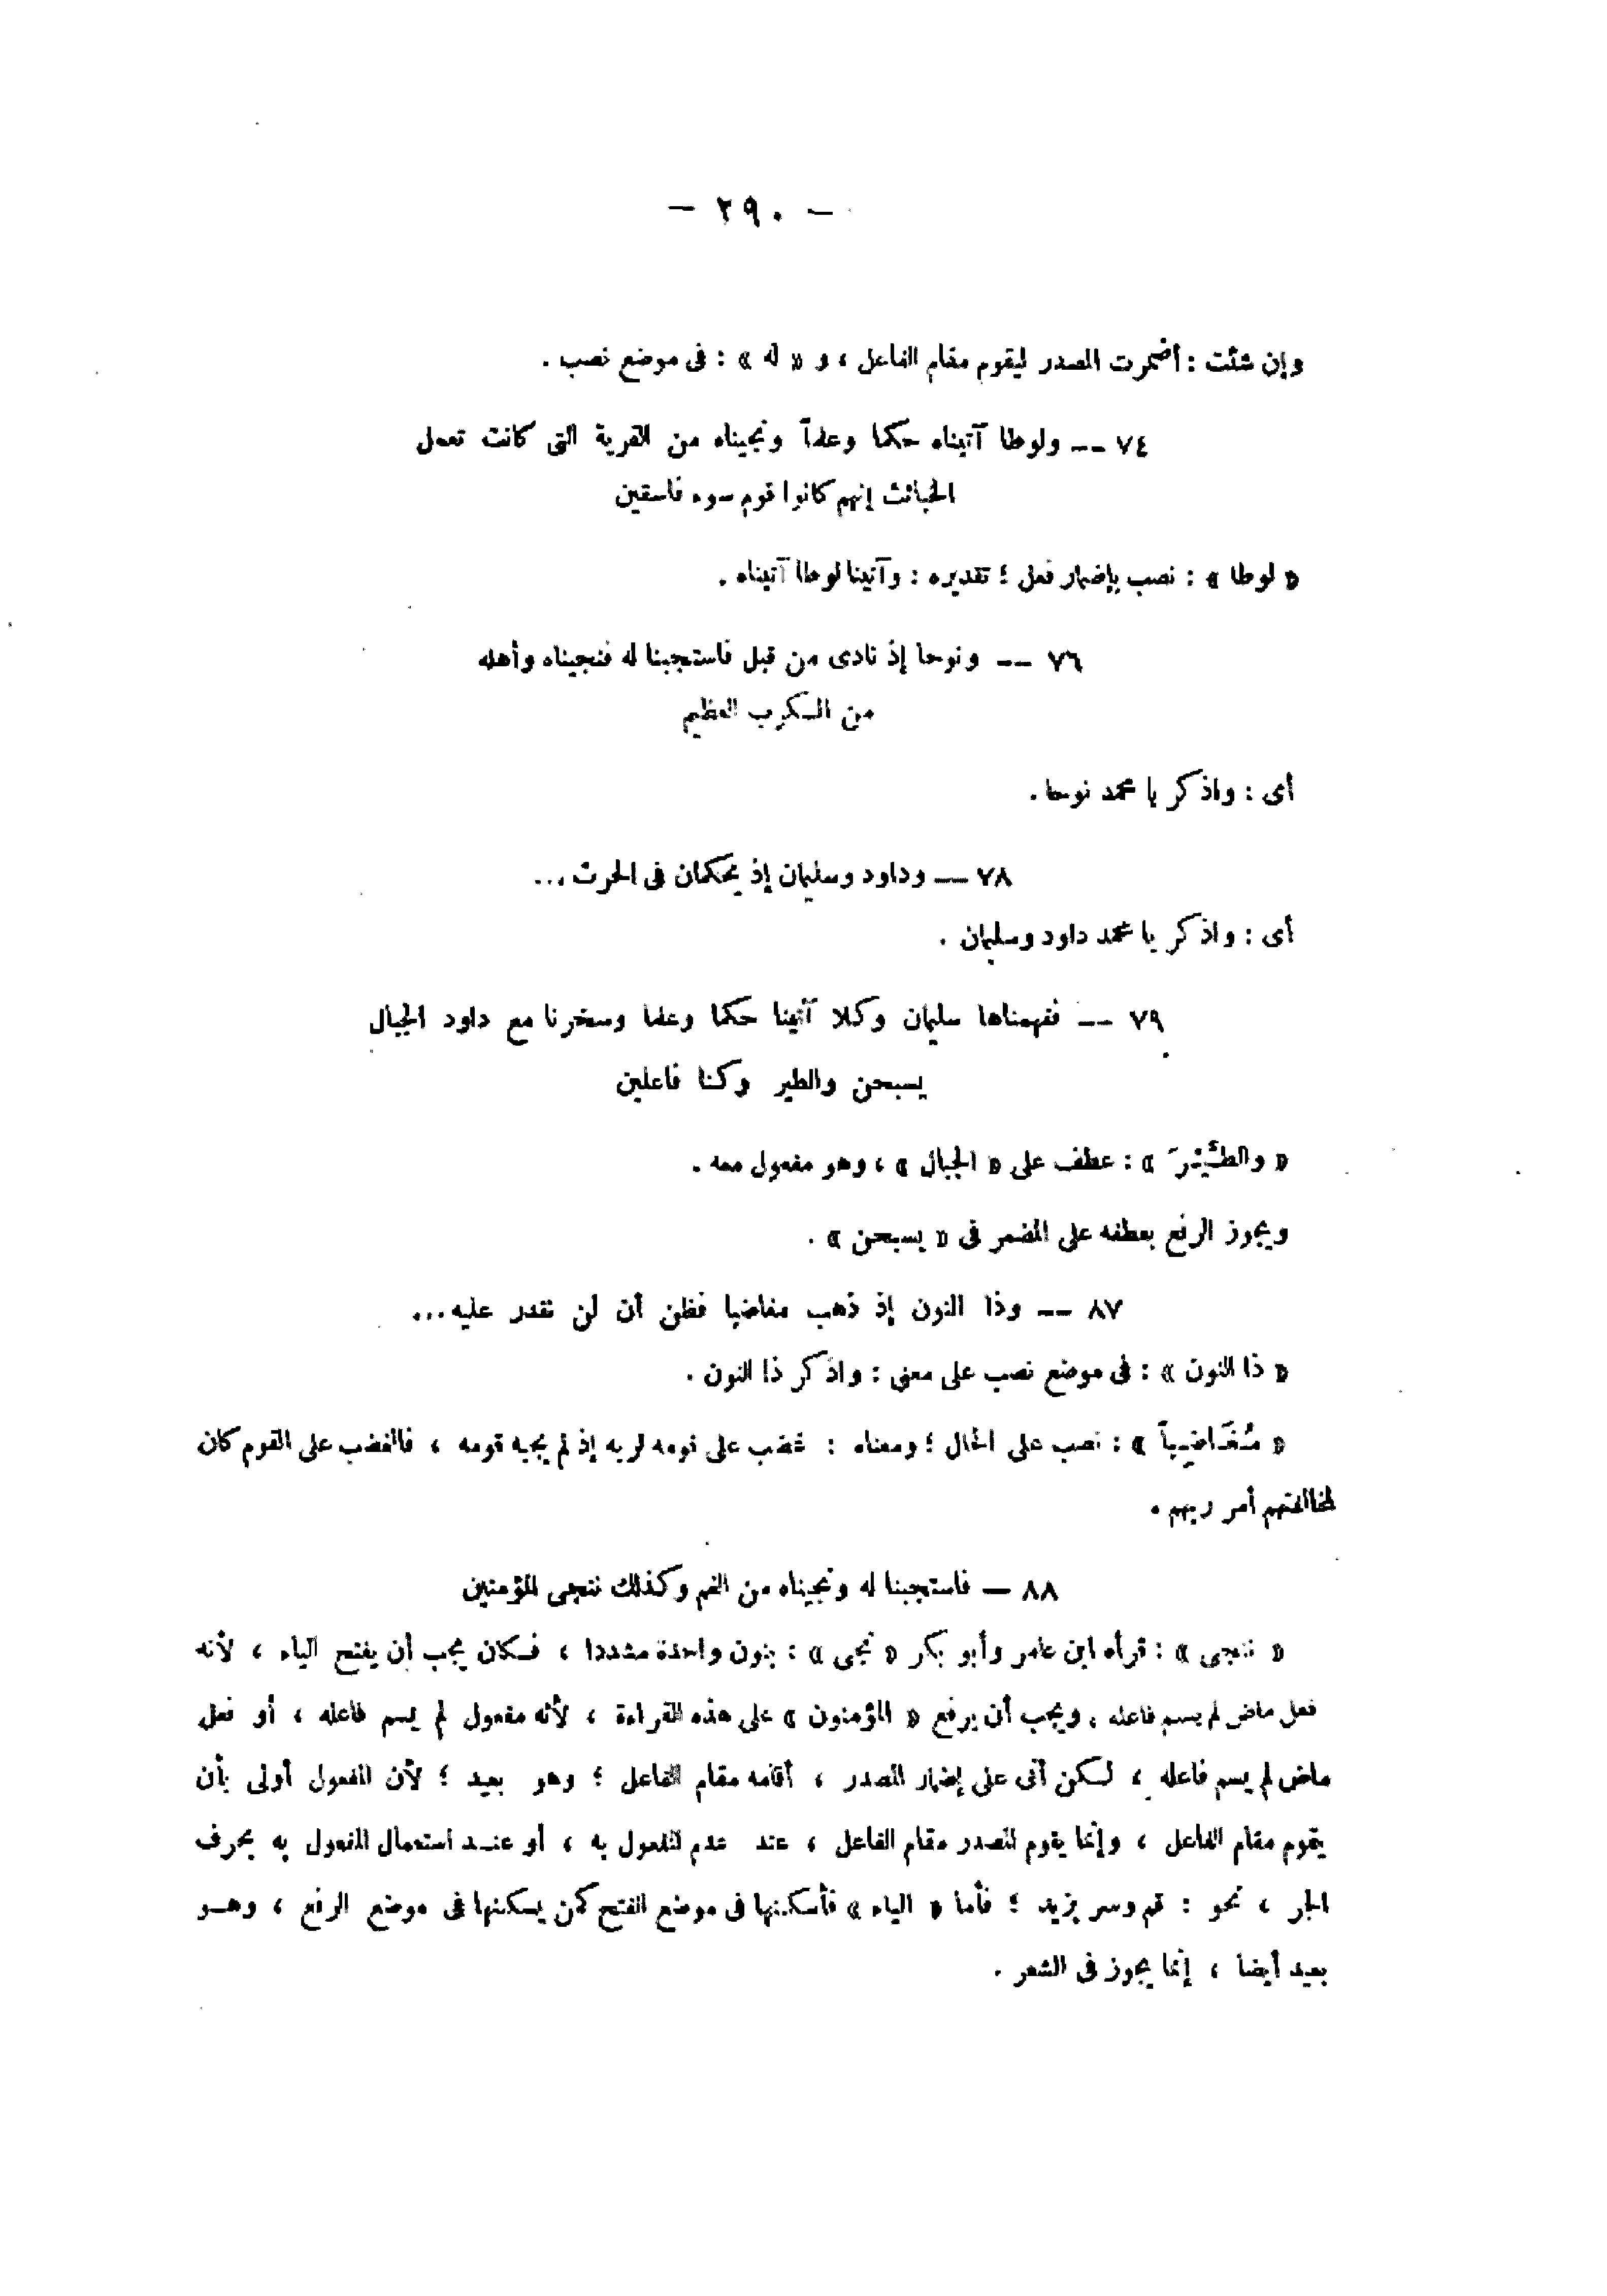 — ٢٩٠ —
وإن شئت : أضمرت المصدر ليقوم مقام الفاعل ، و « له » : فى موضع نصب .
٧٤ — ولوطا آتيناه حكما وعلماً ونجيناه من القرية التى كانت تعمل
الخبائث إنهم كانوا قوم سوء فاسقين
« لوطا » : نصب بإضمار فعل ؛ تقديره : وآتينا لوطا آتيناه .
٧٦ — ونوحا إذ نادى من قبل فاستجبنا له فنجيناه وأهله
من الكرب العظيم
أى : واذكر يا محمد نوحا .
٧٨ — وداود وسليمان إذ يحكمان فى الحرث ...
أى : واذكر يا محمد داود وسليمان .
٧٩ — ففهمناها سليمان وكلا آتينا حكما وعلما وسخرنا مع داود الجبال
يسبحن والطير وكنا فاعلين
« والطَّيْرَ » : عطف على « الجبال » ، وهو مفعول معه .
ويجوز الرفع بعطفه على المضمر فى « يسبحن » .
٨٧ — وذا النون إذ ذهب مغاضبا فظن أن لن نقدر عليه ...
« ذا النون » : فى موضع نصب على معنى : واذكر ذا النون .
« مُغَاضِباً » : نصب على الحال ؛ ومعناه : غضب على قومه لربه إذ لم يجبه قومه ، فالغضب على القوم كان
لمخالفتهم أمر ربهم .
٨٨ — فاستجبنا له ونجيناه من الغم وكذلك ننجى المؤمنين
« ننجى » : قرأه ابن عامر وأبو بكر « نجى » : بنون واحدة مشددا ، فكان يجب أن يفتح الياء ، لأنه
فعل ماض لم يسم فاعله . ويجب أن يرفع « المؤمنون » على هذه القراءة ، لأنه مفعول لم يسم فاعله ، أو فعل
ماض لم يسم فاعله ، لكن أتى على إضمار المصدر ، أقامه مقام الفاعل ؛ وهو بعيد ؛ لأن المفعول أولى بأن
يقوم مقام الفاعل ، وإنما يقوم المصدر مقام الفاعل ، عند عدم المفعول به ، أو عند استعمال المفعول به بحرف
الجر ، نحو : قم وسر بزيد ؛ فأما « الياء » فأسكنها فى موضع الفتح كمن يسكنها فى موضع الرفع ، وهو
بعيد أيضا ، إنما يجوز فى الشعر .